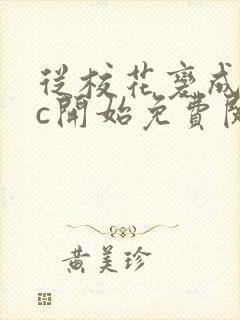 從校花褻成
c開始免費閱
黃美珍